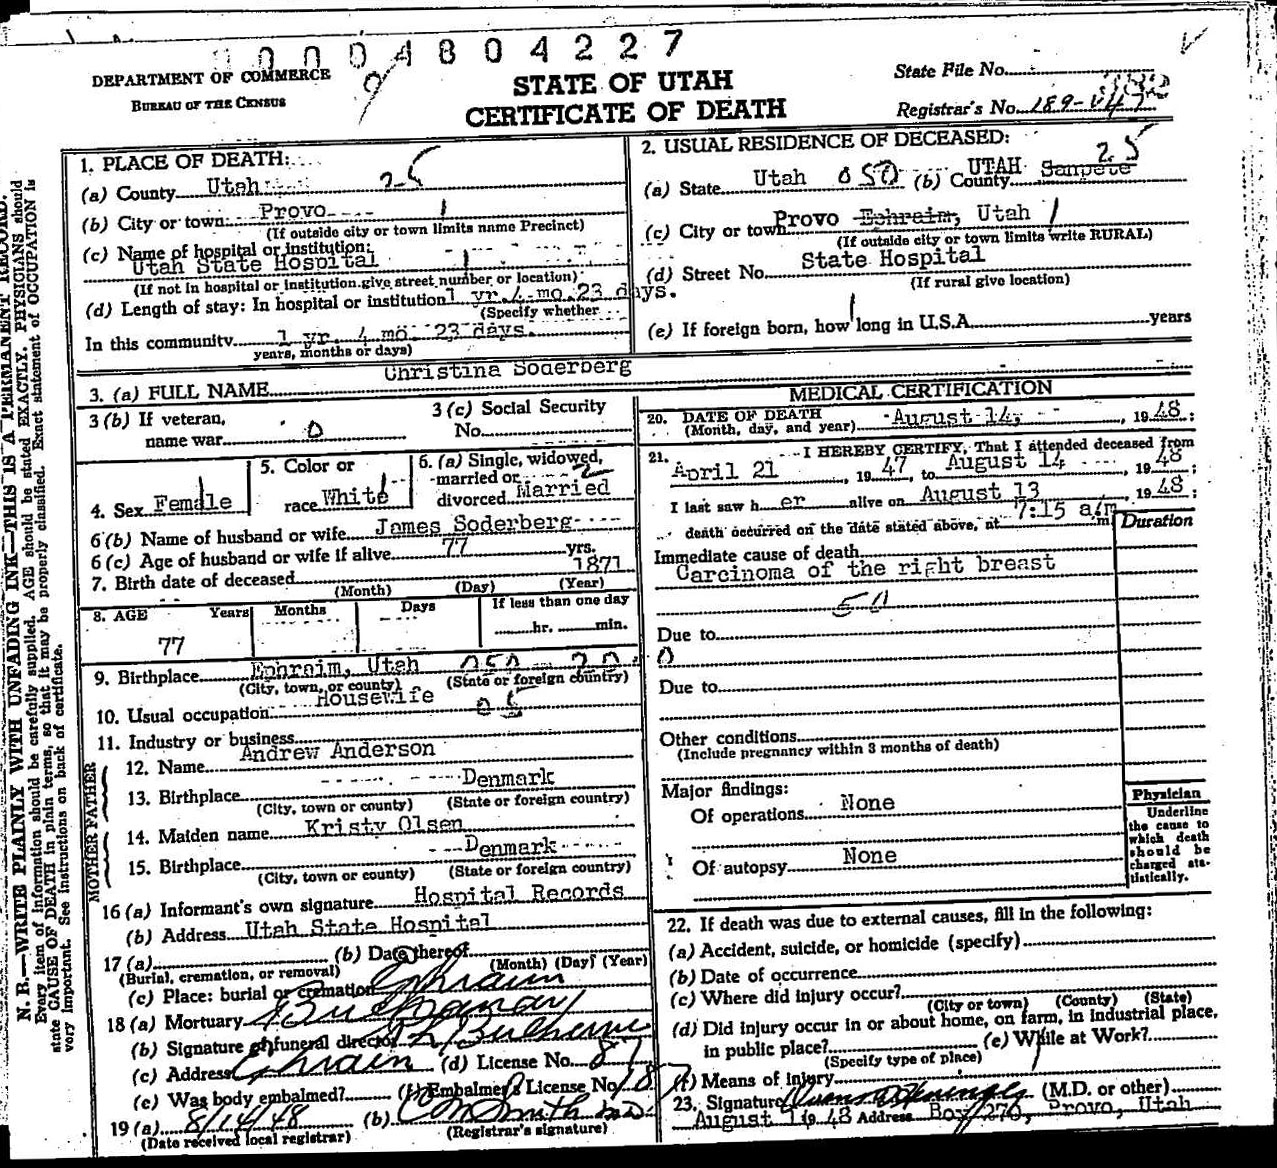 0 0 0 4 8 0 4 2 2 7
DEPARTMENT OF COMMERCE
BUREAU OF THE CENSUS
STATE OF UTAH
CERTIFICATE OF DEATH
State File No.
Registrar's No. 189-
1. PLACE OF DEATH:
(a) County Utah 25
(b) City or town: Provo 1
(If outside city or town limits name Precinct)
(c) Name of hospital or institution:
Utah State Hospital 1
(If not in hospital or institution give street number or location)
(d) Length of stay: In hospital or institution 1 yr. 4 mo. 23 days.
(Specify whether
In this community 1 yr. 4 mo. 23 days.
years, months or days)
2. USUAL RESIDENCE OF DECEASED:
25
(a) State Utah 050 (b) County UTAH Sanpete
(c) City or town Provo Ephraim, Utah 1
(If outside city or town limits write RURAL)
(d) Street No. State Hospital
(If rural give location)
(e) If foreign born, how long in U.S.A. years
3. (a) FULL NAME Christina Soderberg
3 (b) If veteran,
name war 0
3 (c) Social Security
No.
4. Sex Female
5. Color or
race White
6. (a) Single, widowed,
married or 2
divorced Married
6 (b) Name of husband or wife James Soderberg
6 (c) Age of husband or wife if alive 77 yrs.
7. Birth date of deceased 1871
(Month) (Day) (Year)
8. AGE Years Months Days If less than one day
77 hr. min.
9. Birthplace Ephraim, Utah 050 20
(City, town, or county) (State or foreign country)
10. Usual occupation Housewife 05
11. Industry or business
FATHER
12. Name Andrew Anderson
13. Birthplace Denmark
(City, town or county) (State or foreign country)
MOTHER
14. Maiden name Kristy Olsen
15. Birthplace Denmark
(City, town or county) (State or foreign country)
16 (a) Informant's own signature Hospital Records
(b) Address Utah State Hospital
17 (a) (b) Date thereof
(Burial, cremation, or removal) (Month) (Day) (Year)
(c) Place: burial or cremation Ephraim
18 (a) Mortuary
(b) Signature of funeral director
(c) Address Ephraim (d) License No. 87
(e) Was body embalmed? (f) Embalmer's License No. 187
19 (a) 8/14/48 (b) C M Smith M.D.
(Date received local registrar) (Registrar's signature)
MEDICAL CERTIFICATION
20. DATE OF DEATH
(Month, day, and year) August 14, 1948;
21. I HEREBY CERTIFY, That I attended deceased from
April 21, 1947, to August 14, 1948;
I last saw her alive on August 13, 1948;
death occurred on the date stated above, at 7:15 a/m m
Duration
Immediate cause of death
Carcinoma of the right breast
50
Due to
0
Due to
Other conditions
(Include pregnancy within 3 months of death)
Major findings:
Of operations None
Of autopsy None
Physician
Underline
the cause to
which death
should be
charged sta-
tistically.
22. If death was due to external causes, fill in the following:
(a) Accident, suicide, or homicide (specify)
(b) Date of occurrence
(c) Where did injury occur?
(City or town) (County) (State)
(d) Did injury occur in or about home, on farm, in industrial place,
in public place? (e) While at Work?
(Specify type of place)
(f) Means of Injury
23. Signature (M.D. or other)
August 1948 Address Box 270, Provo, Utah
N. B.—WRITE PLAINLY WITH UNFADING INK—THIS IS A PERMANENT RECORD.
Every item of information should be carefully supplied. AGE should be stated EXACTLY. PHYSICIANS should
state CAUSE OF DEATH in plain terms, so that it may be properly classified. Exact statement of OCCUPATION is
very important. See instructions on back of certificate.